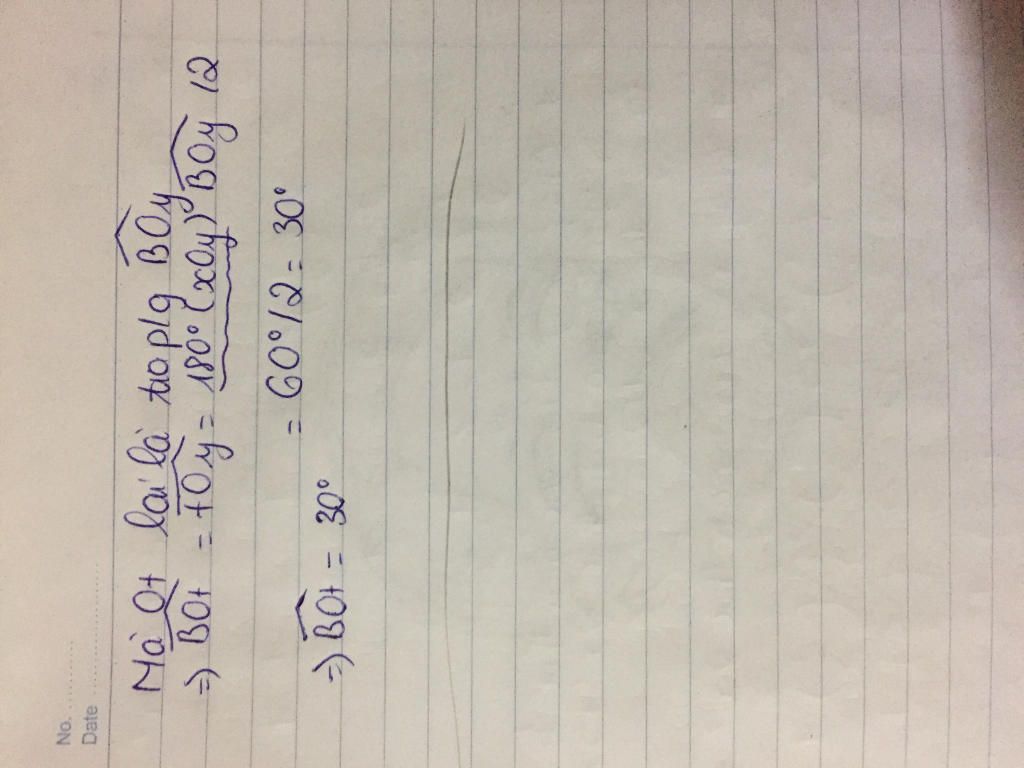 No. ............
Date ........................
Mà Ot lại là tia p/g BOy
=) BOt = tOy = 180° (xOy) BOy /2
= 60° / 2 = 30°
=) BOt = 30°